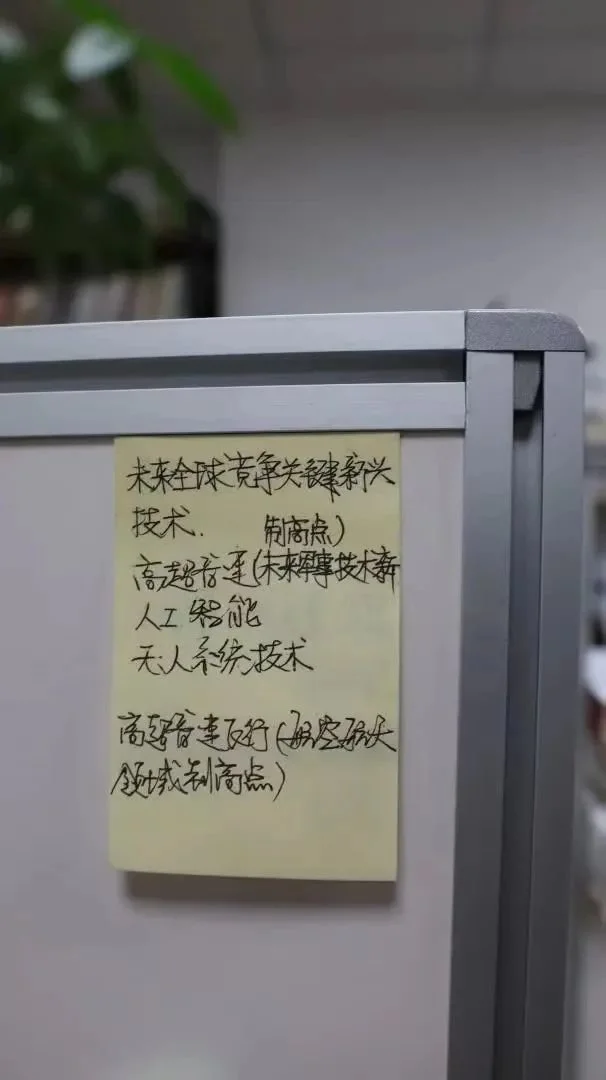 未来全球竞争关键新兴
技术. 制高点)
高超音速(未来军事技术新
人工智能
无人系统技术
高超音速飞行(航空航天
领域制高点)